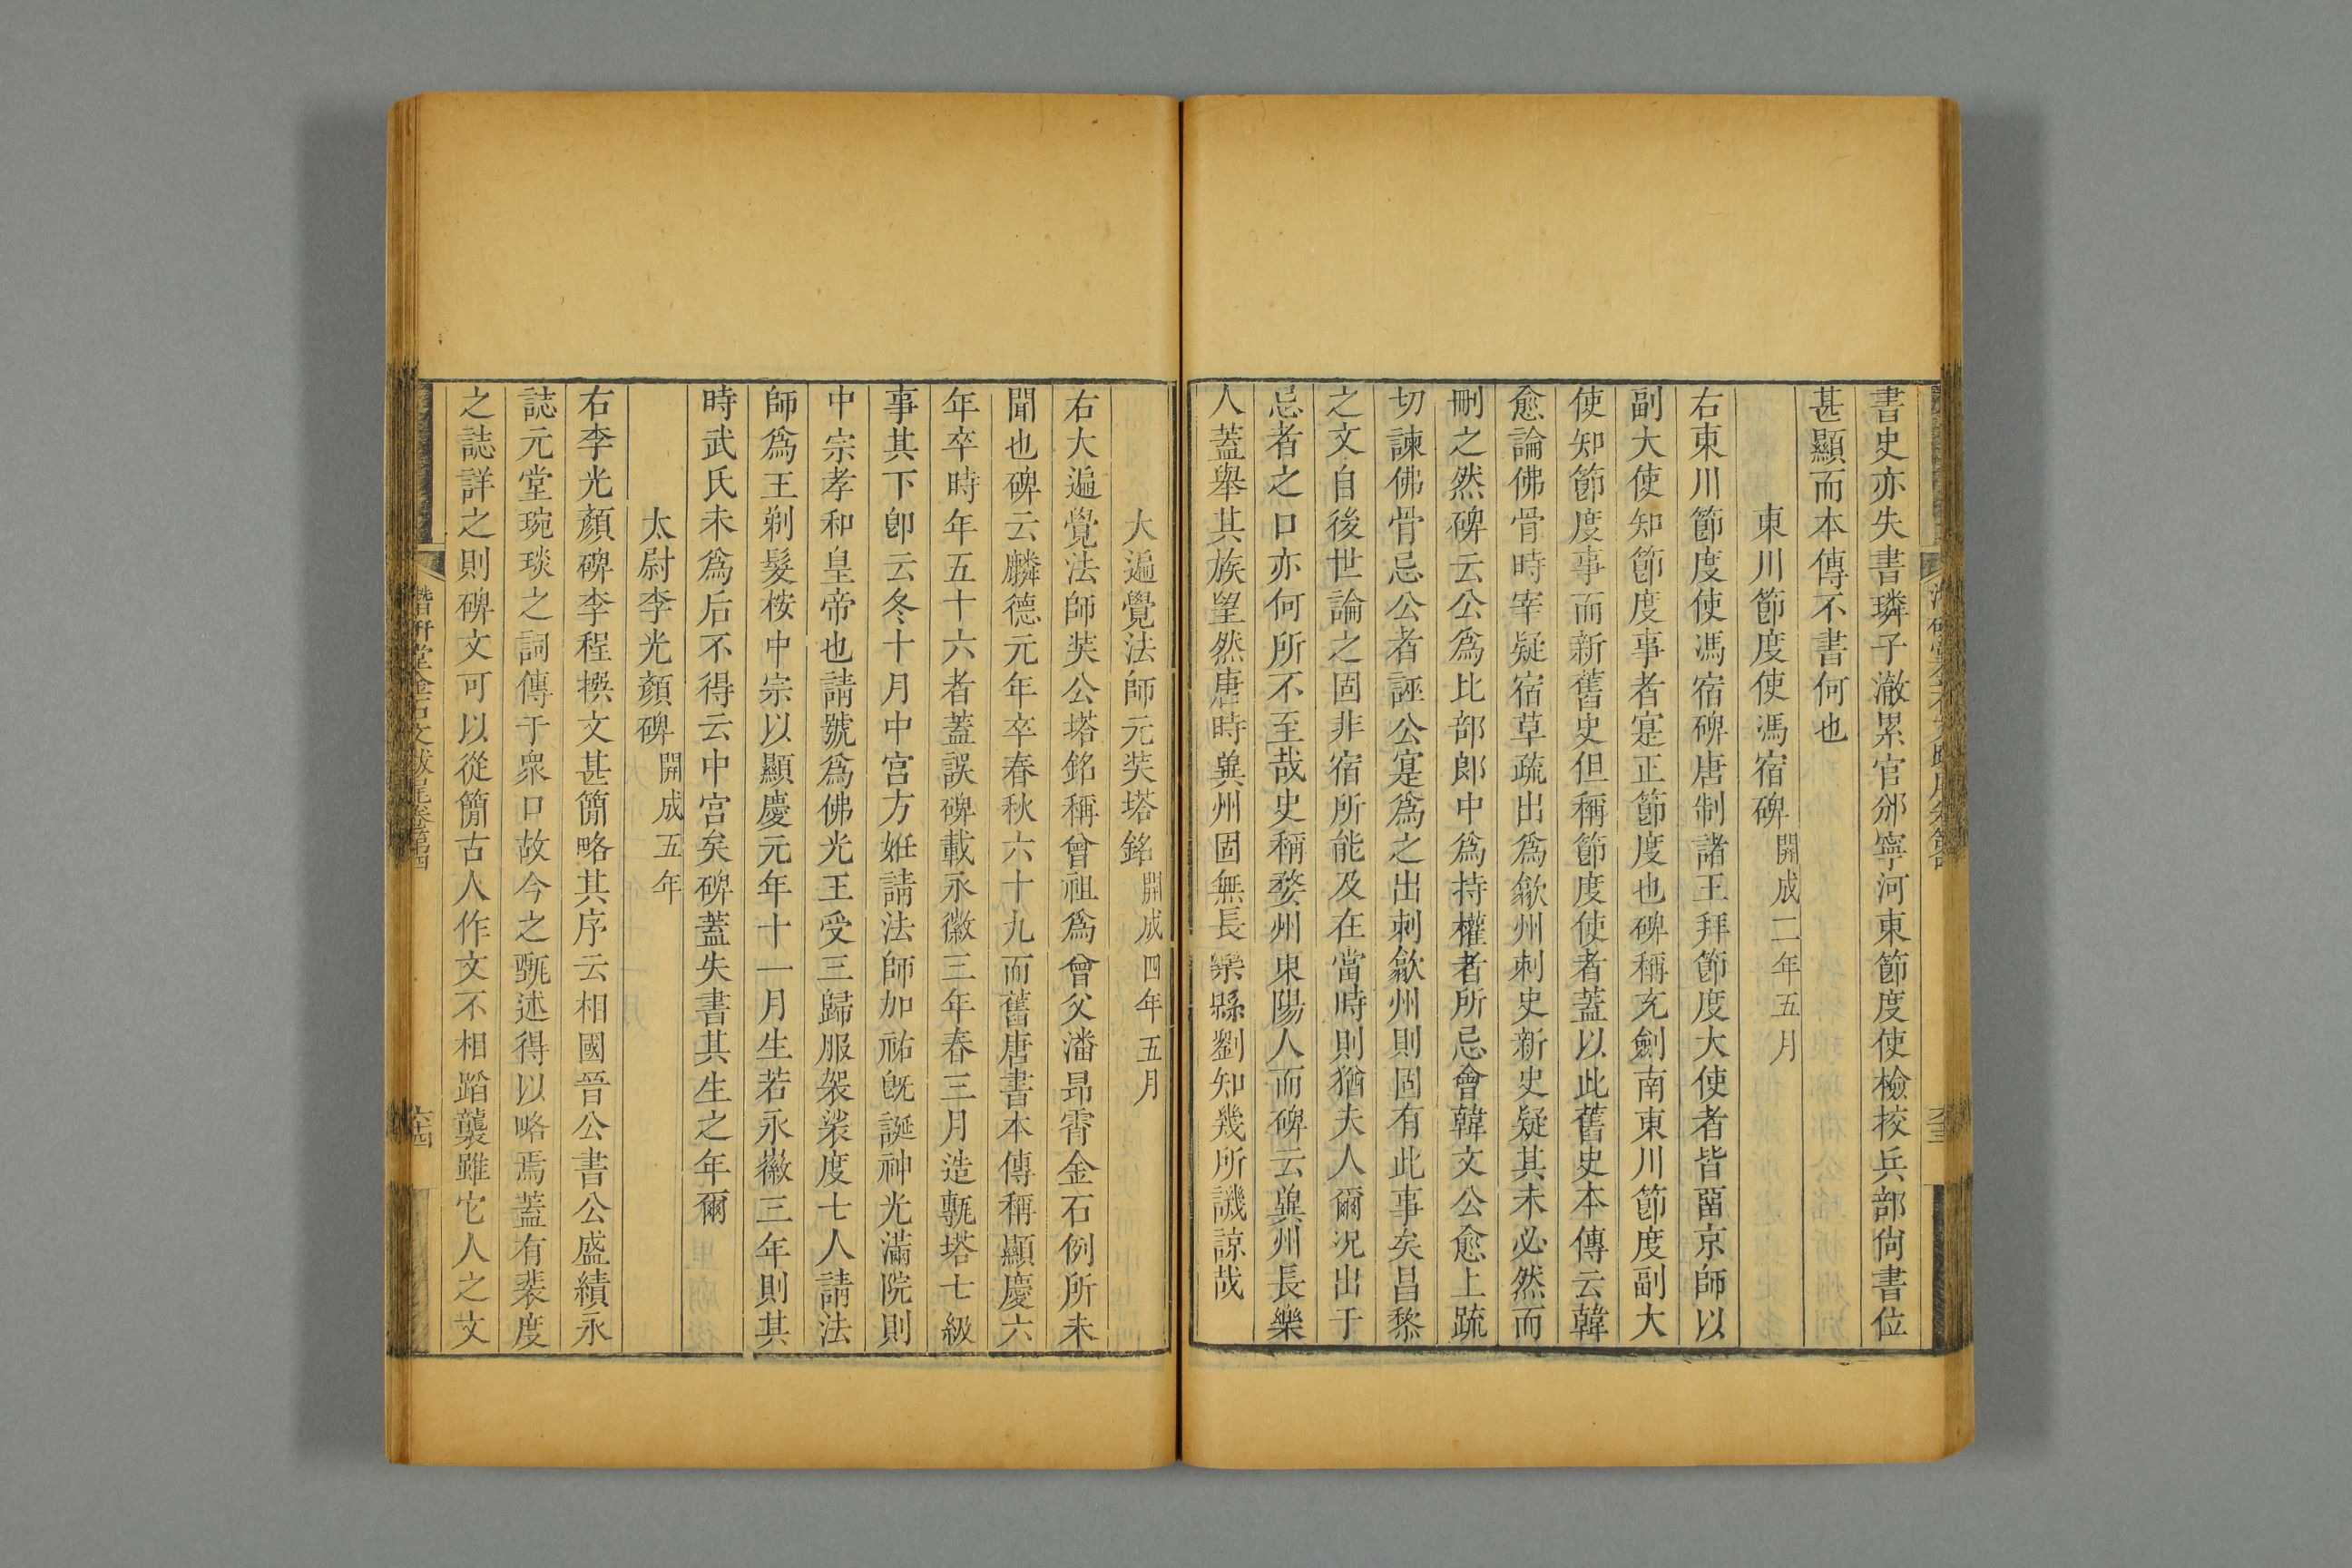 書史亦失書璘子澈累官邠寧河東節度使檢挍兵部尙書位
甚顯而本傳不書何也
東川節度使馮宿碑開成二年五月
右東川節度使馮宿碑唐制諸王拜節度大使者皆畱京師以
副大使知節度事者寔正節度也碑稱充劍南東川節度副大
使知節度事而新舊史但稱節度使者蓋以此舊史本傳云韓
愈論佛骨時宰疑宿草疏出爲歙州刺史新史疑其未必然而
刪之然碑云公爲比部郎中爲持權者所忌會韓文公愈上疏
切諫佛骨忌公者誣公寔爲之出刺歙州則固有此事矣昌黎
之文自後世論之固非宿所能及在當時則猶夫人爾况出于
忌者之口亦何所不至哉史稱婺州東陽人而碑云兾州長樂
人蓋舉其族望然唐時兾州固無長樂縣劉知幾所譏諒哉
大遍覺法師元奘塔銘開成四年五月
右大遍覺法師奘公塔銘稱曾祖爲曾父潘昂霄金石例所未
聞也碑云麟德元年卒春秋六十九而舊唐書本傳稱顯慶六
年卒時年五十六者蓋誤碑載永徽三年春三月造甎塔七級
事其下卽云冬十月中宫方姙請法師加祐旣誕神光滿院則
中宗孝和皇帝也請號爲佛光王受三歸服袈裟度七人請法
師爲王剃髮桉中宗以顯慶元年十一月生若永徽三年則其
時武氏未爲后不得云中宫矣碑蓋失書其生之年爾
太尉李光顏碑開成五年
右李光顏碑李程撰文甚簡略其序云相國晉公書公盛績永
誌元堂琬琰之詞傳于衆口故今之甄述得以略焉蓋有裴度
之誌詳之則碑文可以從簡古人作文不相蹈襲雖它人之文
潛硏堂金石文跋尾卷第四
六十四